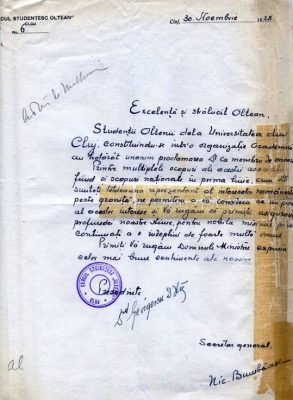 CERCUL STUDENTESC OLTEAN
CLUJ
No. 6
Cluj, 30 Noembrie 1928
Excelență și strălucit Oltean.
Studenții Olteni dela Universitatea din
Cluj, constituindu-se într'o organizație Academică
au hotărât unanim proclamarea D-v ca membru de onoare
Printre multiplele scopuri ale acestei asociații
fiind și scopuri naționale în prima linie, cum D-v
sunteți totdeauna reprezentant al intereselor românești
peste graniță, ne permitem a vă considera ca un
al acestor interese și vă rugăm să primiți asigurarea
profundei noastre stime, pentru nobila misiune
continuată cu o vrednicie de foarte mulți
Primiți vă rugăm Domnule Ministru expresia
celor mai bune sentimente ale noastre
Președinte
CERCUL STUDENTESC OLTEAN
CLUJ
Secretar general,
Nic.
al